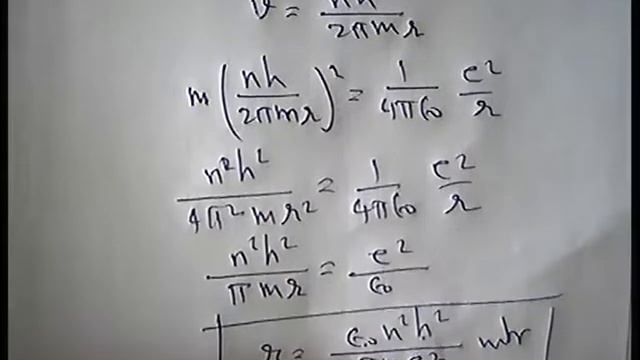 v = nh / 2πmr
m (nh / 2πmr)² = 1 / 4πε₀ e² / r
n²h² / 4π²mr² = 1 / 4πε₀ e² / r
n²h² / πmr = e² / ε₀
r = ε₀n²h² / mtr